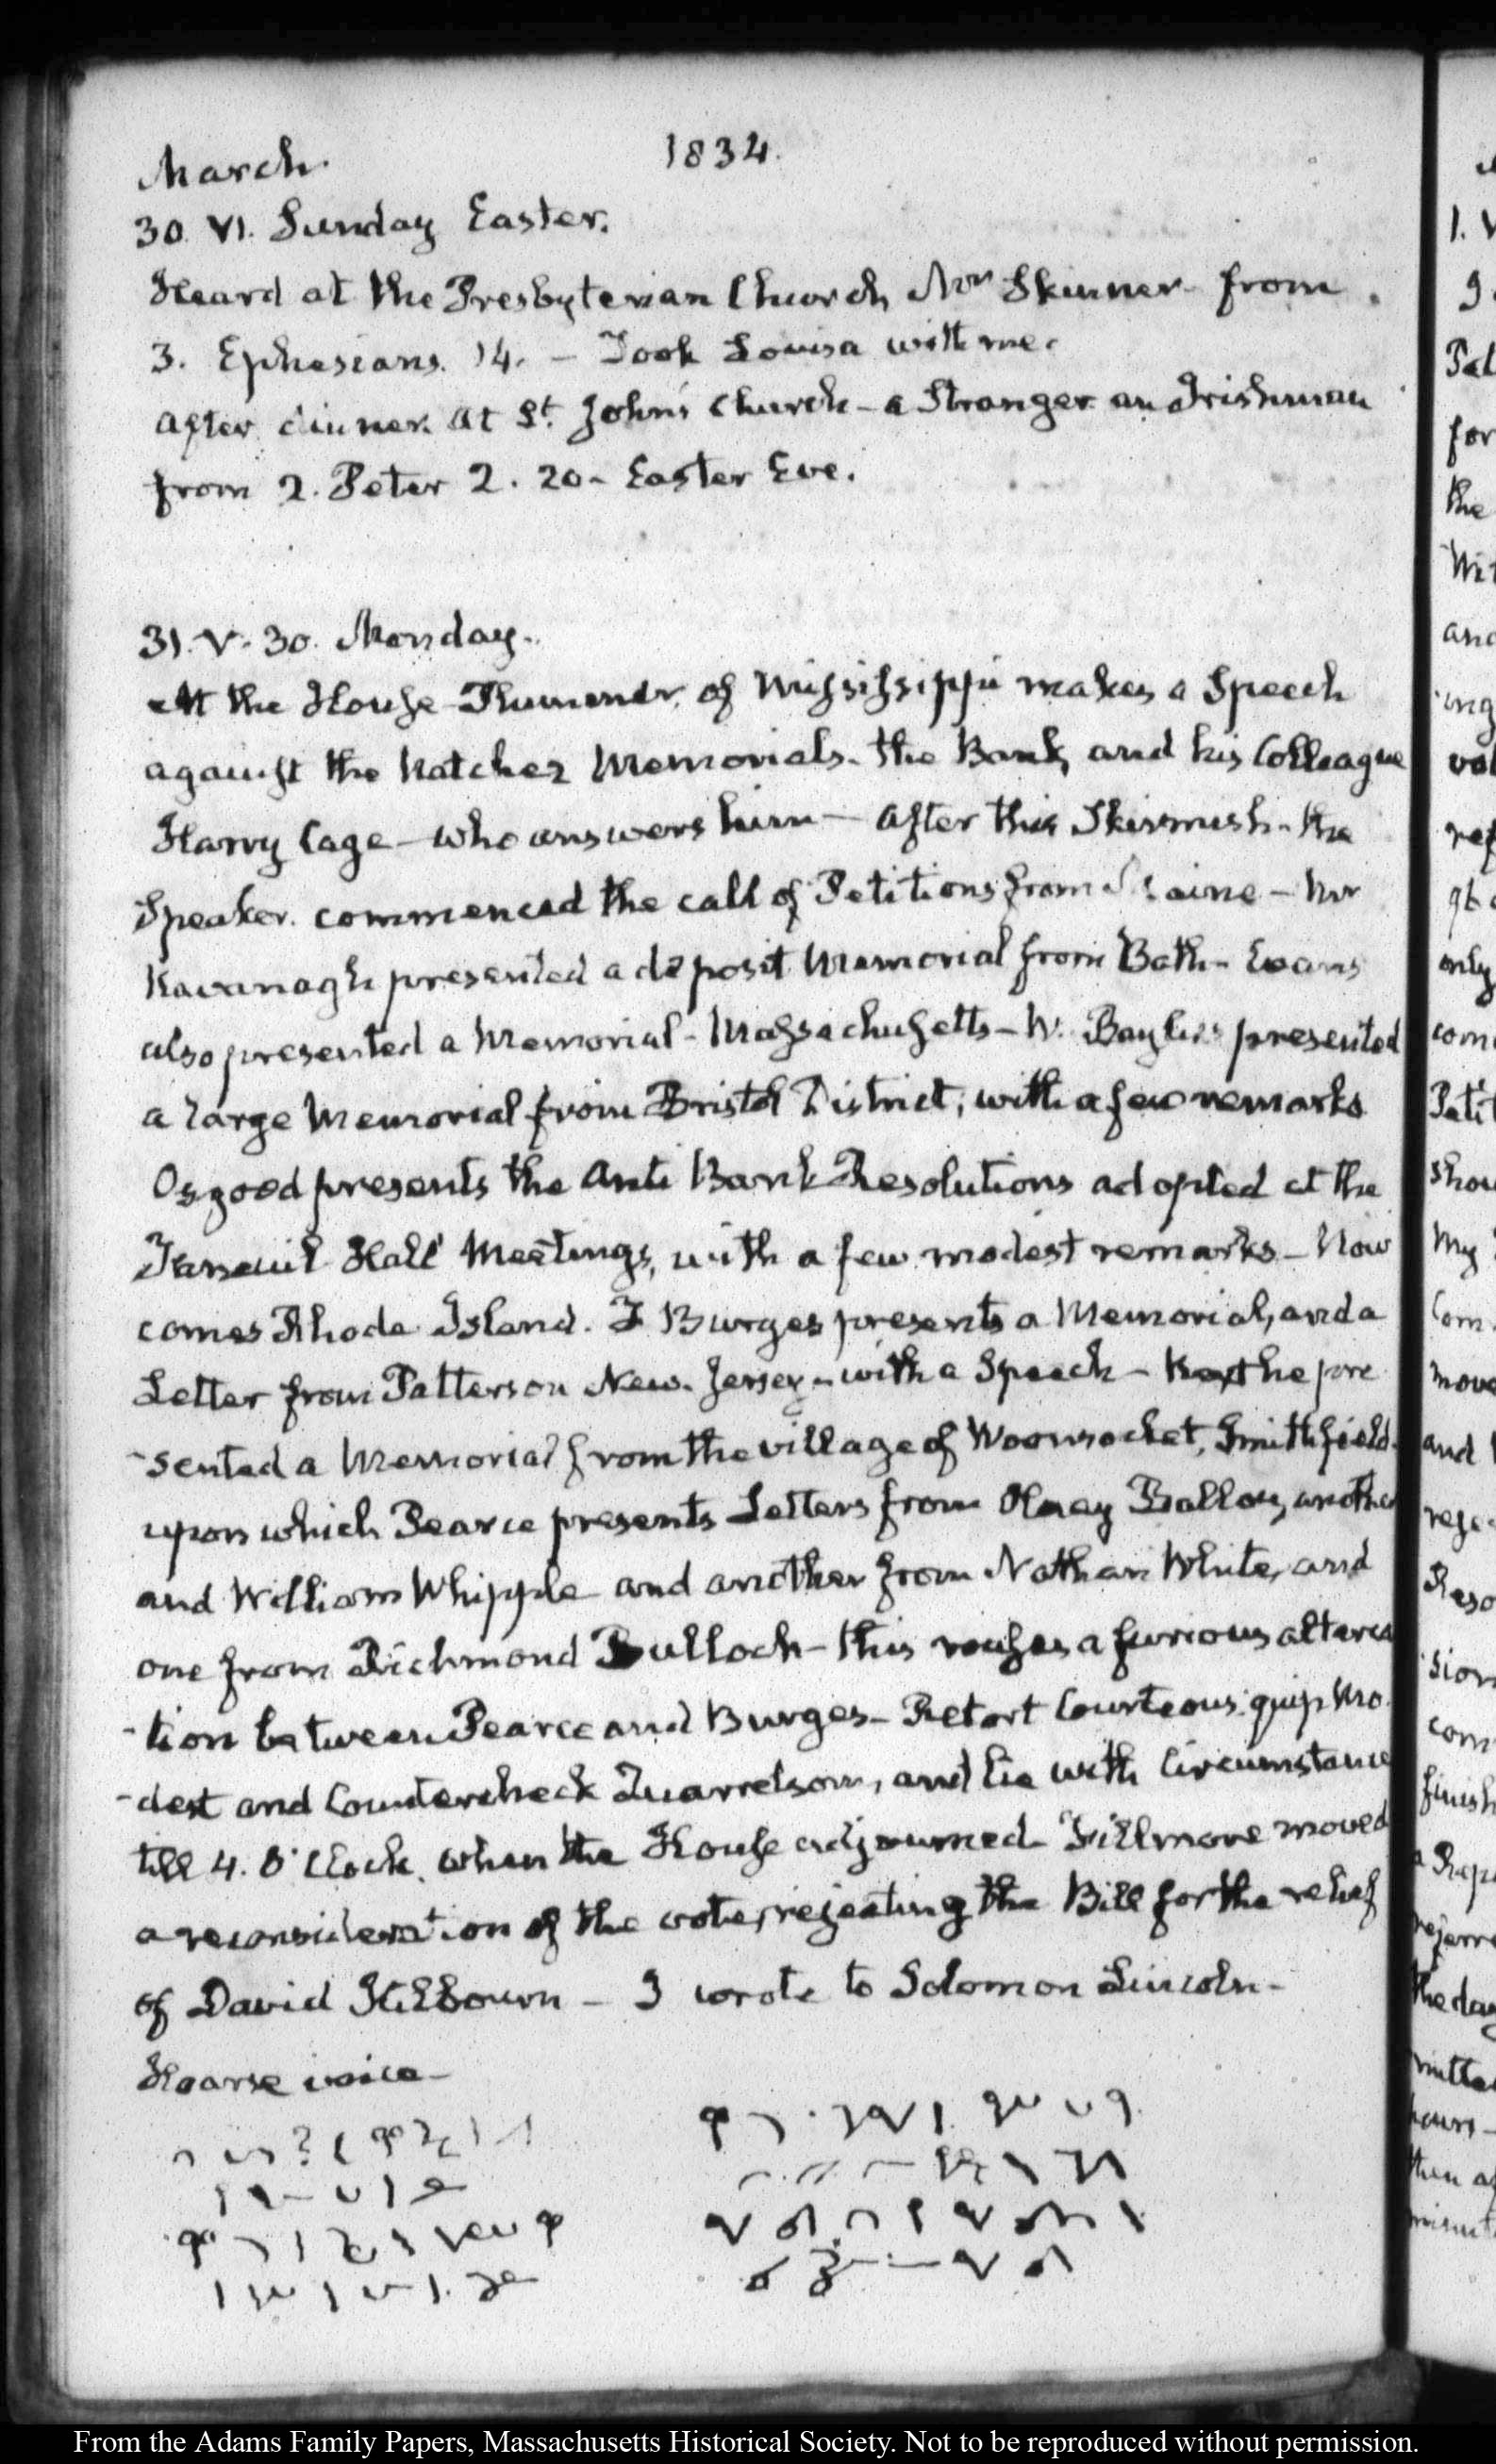 March. 1834.
30. VI. Sunday Easter.
Heard at the Presbyterian Church, Mr Skinner from
3. Ephesians. 14. – Took Louisa with me.
After dinner at St. John's Church – a Stranger an Irishman
from 2. Peter 2. 20 – Easter Eve.
31. V. 30. Monday.
At the House Plummer of Mississippi makes a Speech
against the Natchez Memorials. the Bank, and his Colleague
Harry Cage – who answers him – After this Skirmish – the
Speaker commenced the call of Petitions from Maine – Mr
Kavanagh presented a deposit Memorial from Bath – Evans
also presented a Memorial – Massachusetts – W. Baylies presented
a large Memorial from Bristol District, with a few remarks
Osgood presents the Anti Bank Resolutions adopted at the
Faneuil Hall Meetings, with a few modest remarks – Now
comes Rhode Island. T Burges presents a Memorial, and a
Letter from Patterson New. Jersey – with a Speech – Next he pre
-sented a Memorial from the village of Woonsocket, Smithfield
upon which Pearce presents Letters from Olney Ballou, another
and William Whipple and another from Nathan White, and
one from Richmond Bulloch – this rouses a furious alterca
-tion between Pearce and Burges – Retort Courteous quip Mo
-dest and Countercheck Quarrelsom, and lie with Circumstance
till 4. O'Clock. when the House adjourned – Fillmore moved
a reconsideration of the vote, rejecting the Bill for the relief
of David Kilbourn – I wrote to Solomon Lincoln –
Hoarse voice –
From the Adams Family Papers, Massachusetts Historical Society. Not to be reproduced without permission.